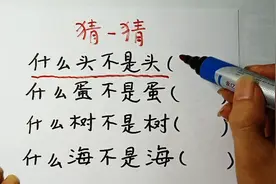 猜一猜
什么头不是头(
什么蛋不是蛋( )
什么树不是树( )
什么海不是海( )